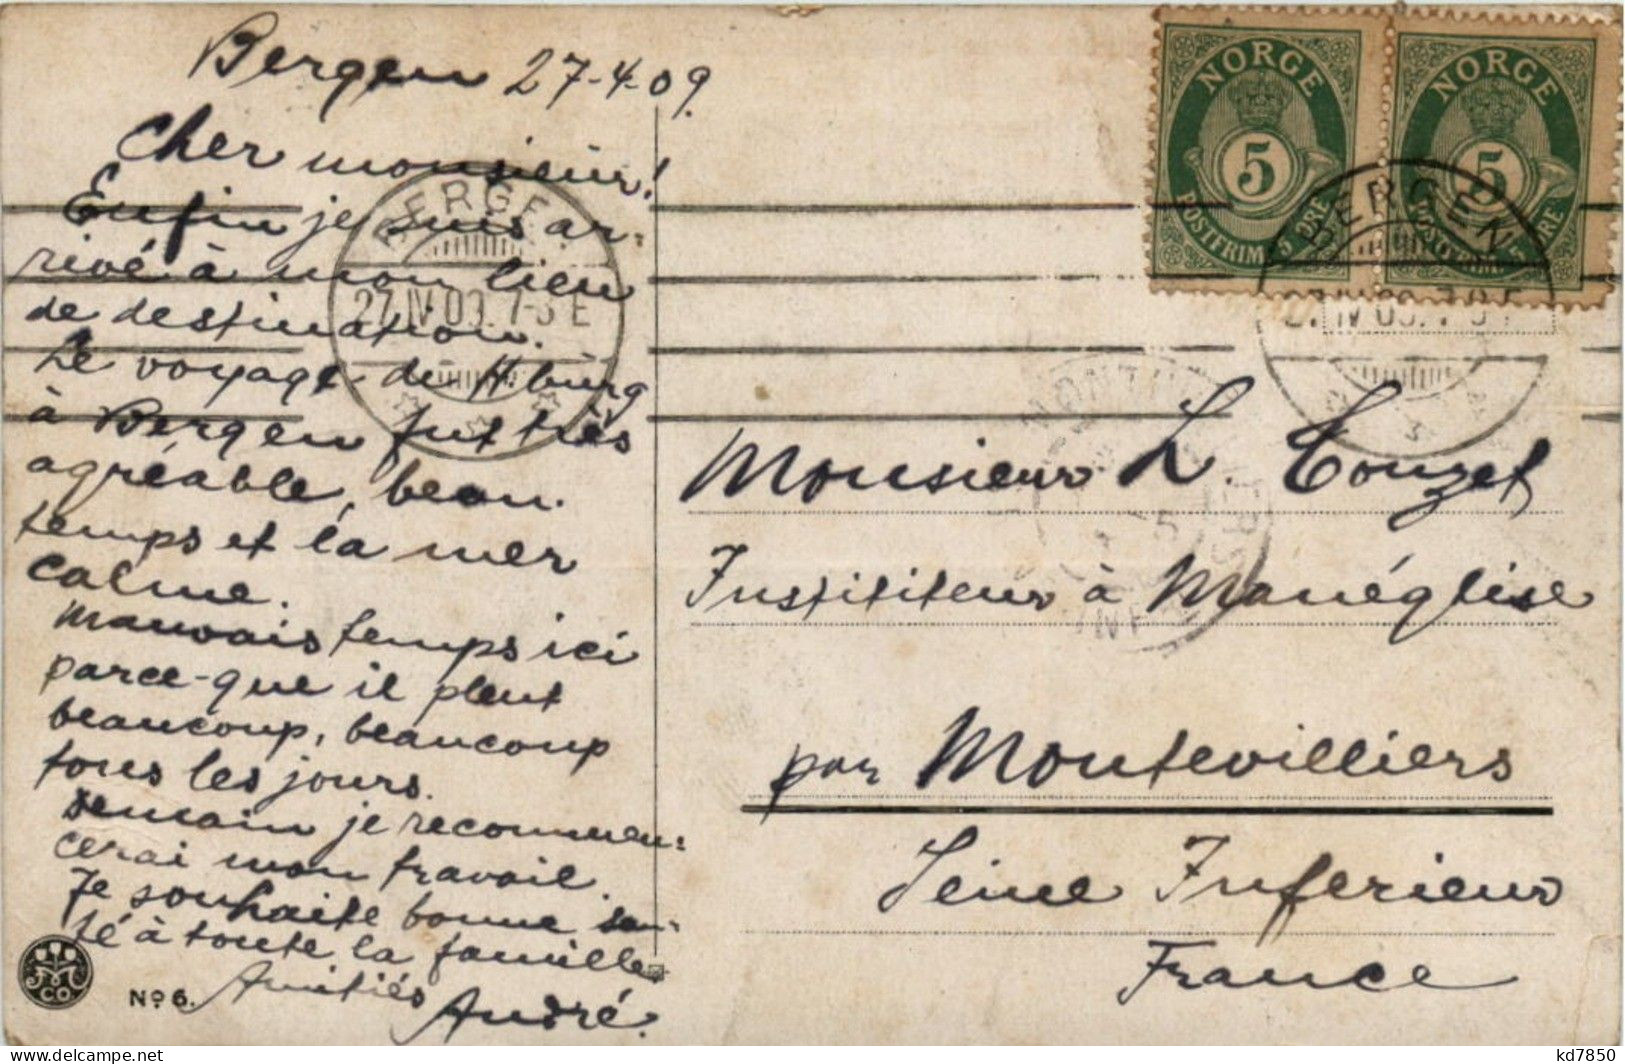 Bergen 27-4-09.
Cher monsieur!
Enfin je suis ar-
rivé à mon lieu
de destination.
Le voyage de Hbürg
à Bergen fut très
agréable, beau.
temps et la mer
calme.
Mauvais temps ici
parce-que il pleut
beaucoup, beaucoup
tous les jours.
Demain je recommen-
cerai mon travail.
Je souhaite bonne san-
té à toute la famille
Amitiés André.
No 6.
NORGE
5
POSTFRIM. 5 ØRE
NORGE
5
POSTFRIM. 5 ØRE
BERGEN
27.IV.09.7-8 E
BERGEN
Monsieur L. Touzet
Instititeur à Manéglise
par Montevilliers
Seine Inferieur
France
kd7850